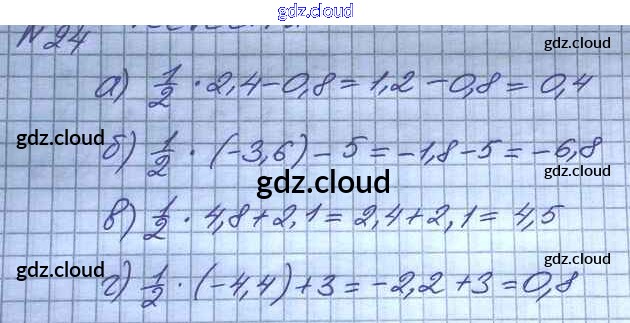 gdz.cloud
N24
gdz.cloud
а) 1/2 · 2,4 - 0,8 = 1,2 - 0,8 = 0,4
gdz.cloud
gdz.cloud
б) 1/2 · (-3,6) - 5 = -1,8 - 5 = -6,8
gdz.cloud
gdz.cloud
в) 1/2 · 4,8 + 2,1 = 2,4 + 2,1 = 4,5
gdz.cloud
gdz.cloud
г) 1/2 · (-4,4) + 3 = -2,2 + 3 = 0,8